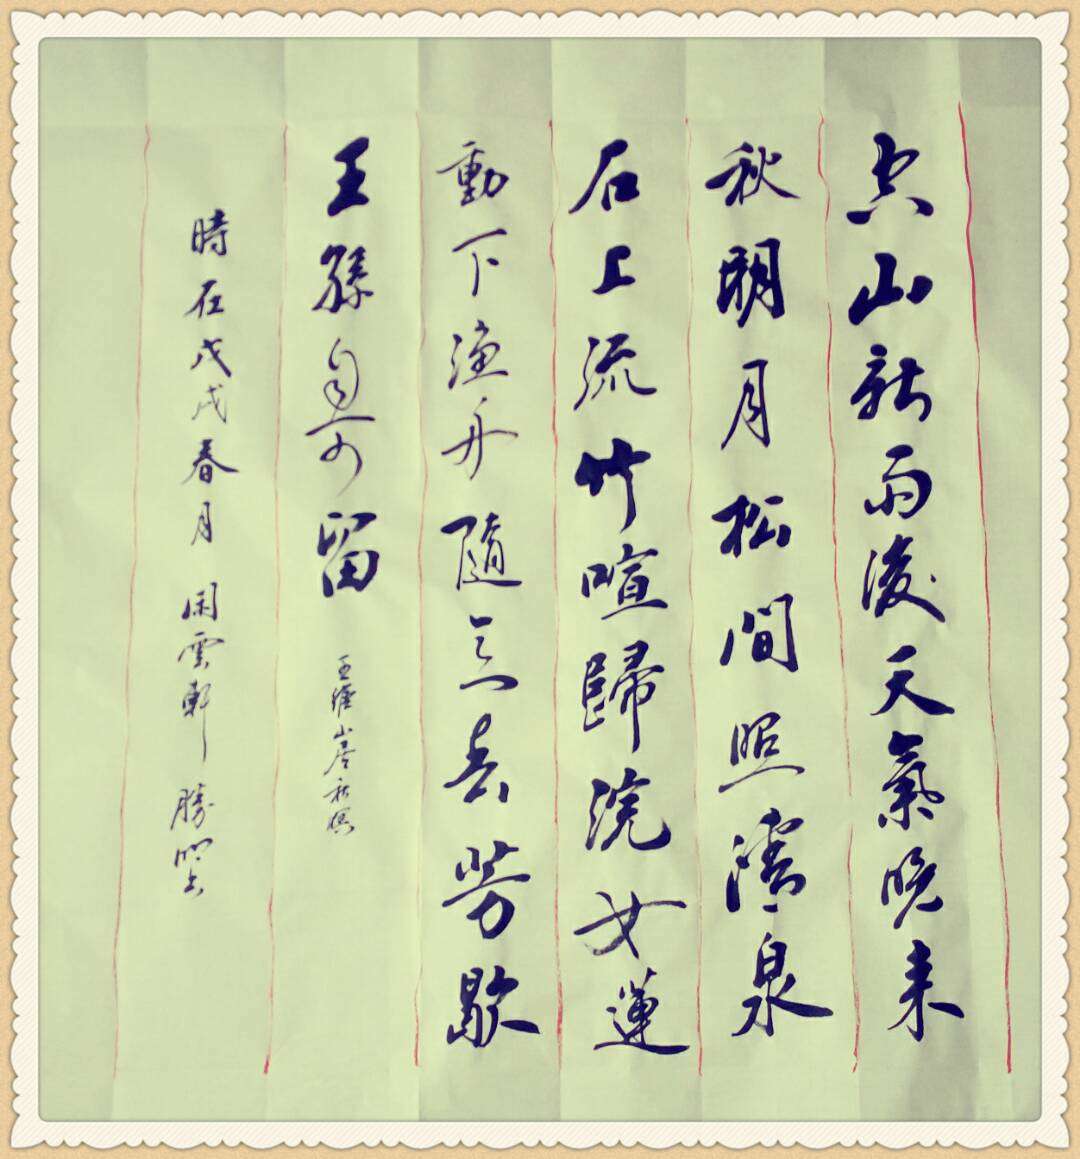 空山新雨後天氣晚来
秋明月松間照清泉
石上流竹喧歸浣女蓮
動下漁舟隨意春芳歇
王孫自可留 王維山居秋暝
時在戊戌春月 闲雲軒 勝